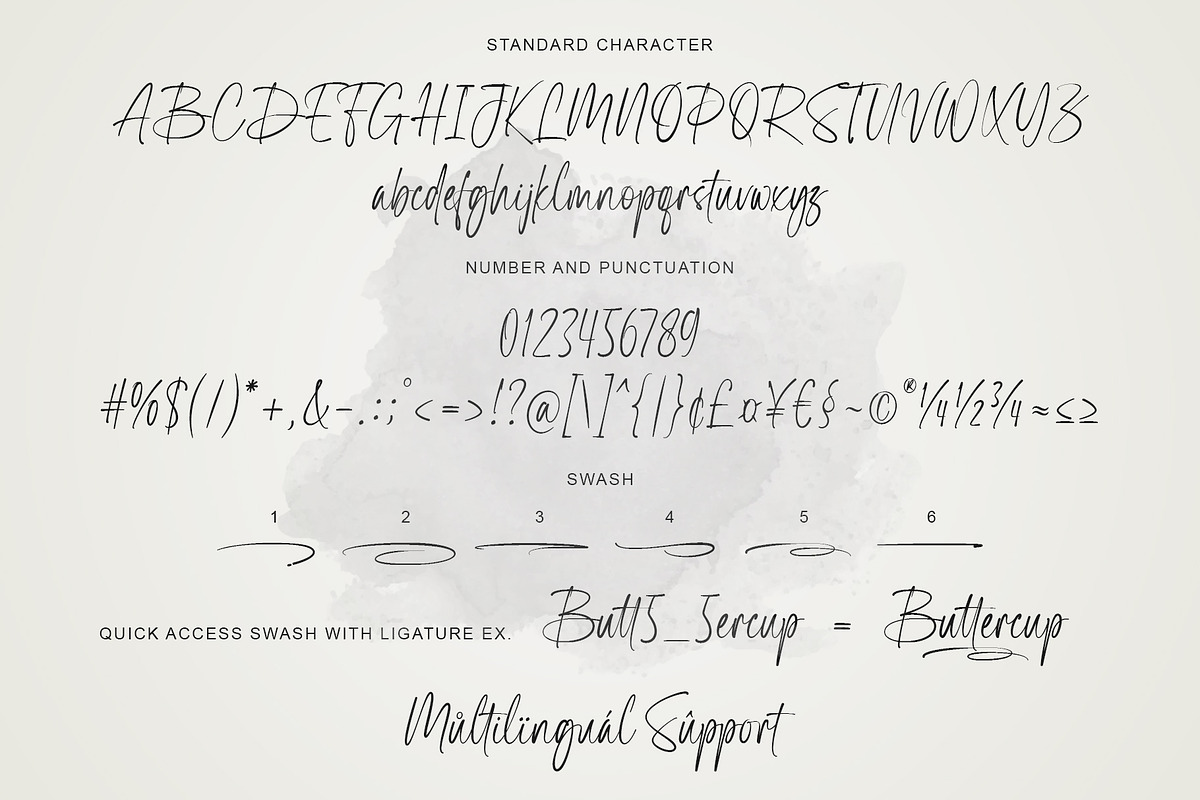 STANDARD CHARACTER
ABCDEFGHIJKLMNOPQRSTUVWXYZ
abcdefghijklmnopqrstuvwxyz
NUMBER AND PUNCTUATION
0123456789
#%$(/)*+,&-.:;°<=>!?@[\]^{|}¢£¤¥€§~©®¼½¾≈≤≥
SWASH
1 2 3 4 5 6
QUICK ACCESS SWASH WITH LIGATURE EX. Butt5_5ercup = Buttercup
Můltilïnguál Sûpport